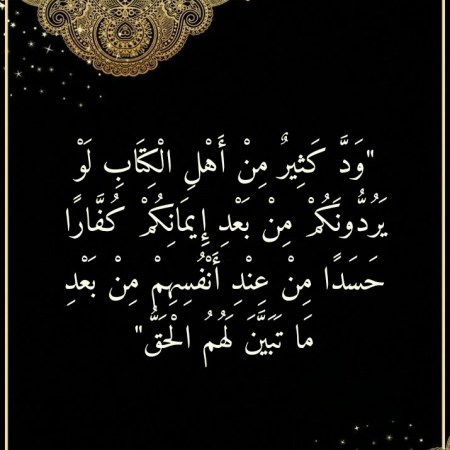 "وَدَّ كَثِيرٌ مِنْ أَهْلِ الْكِتَابِ لَوْ
يَرُدُّونَكُمْ مِنْ بَعْدِ إِيمَانِكُمْ كُفَّارًا
حَسَدًا مِنْ عِنْدِ أَنْفُسِهِمْ مِنْ بَعْدِ
مَا تَبَيَّنَ لَهُمُ الْحَقُّ"